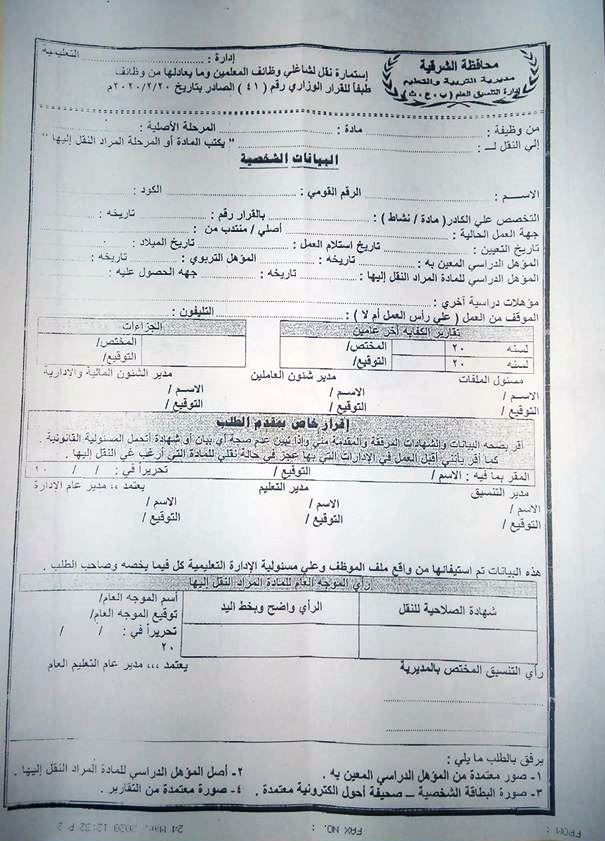 محافظة الشرقية
مديرية التربية والتعليم
إدارة التنسيق العام (ب ، ع ، ث)
إدارة : ................ التعليمية
إستمارة نقل لشاغلي وظائف المعلمين وما يعادلها من وظائف
طبقاً للقرار الوزاري رقم ( ٤١ ) الصادر بتاريخ ٢٠٢٠/٢/٢٠م
من وظيفة : ................ مادة : ................ المرحلة الأصلية : ................
إلي النقل لـــ : ................ " يكتب المادة أو المرحلة المراد النقل إليها "
البيانات الشخصية
الاســـم : ................ الرقم القومي : ................ الكود : ................
التخصص علي الكادر( مادة / نشاط ) : ................ بالقرار رقم : ................ تاريخه : ................
جهة العمل الحالية : ................ أصلي / منتدب من : ................
تاريخ التعيين : ................ تاريخ استلام العمل : ................ تاريخ الميلاد : ................
المؤهل الدراسي المعين به : ................ تاريخه : ................ المؤهل التربوي : ................ تاريخه : ................
المؤهل الدراسي للمادة المراد النقل إليها : ................ تاريخه : ................ جهه الحصول عليه : ................
مؤهلات دراسية آخري : ................
الموقف من العمل ( علي رأس العمل أم لا ) : ................ التليفون : ................
تقارير الكفاية آخر عامين
لسنه ٢٠ المختص/
لسنه ٢٠ التوقيع/
الجزاءات
المختص/
التوقيع/
مسئول الملفات مدير شئون العاملين مدير الشئون المالية والادارية
الاسم / الاسم / الاسم /
التوقيع / التوقيع / التوقيع /
إقرار خاص بمقدم الطلب
أقر بصحه البيانات والشهادات المرفقة والمقدمة مني وإذا تبين عدم صحة أي بيان أو شهادة أتحمل المسئولية القانونية
كما أقر بأنني أقبل العمل في الإدارات التي بها عجز في حالة نقلي للمادة التي أرغب في النقل إليها .
المقر بما فيه : الاسم / التوقيع / تحريراً في : / / ٢٠
مدير التنسيق مدير التعليم يعتمد ،، مدير عام الإدارة
الاسم / الاسم / الاسم /
التوقيع / التوقيع / التوقيع /
هذه البيانات تم استيفائها من واقع ملف الموظف وعلي مسئولية الإدارة التعليمية كل فيما يخصه وصاحب الطلب .
رأي الموجه العام للمادة المراد النقل إليها
شهادة الصلاحية للنقل الرأي واضح وبخط اليد
أسم الموجه العام/
توقيع الموجه العام/
تحريراً في : / / ٢٠
رأي التنسيق المختص بالمديرية يعتمد ،،، مدير عام التعليم العام
يرفق بالطلب ما يلي :
١- صور معتمدة من المؤهل الدراسي المعين به . ٢- أصل المؤهل الدراسي للمادة المراد النقل إليها .
٣- صورة البطاقة الشخصية – صحيفة أحوال الكترونية معتمدة . ٤- صورة معتمدة من التقارير .
FROM : FAX NO. : 24 Mar. 2020 12:32 P 2